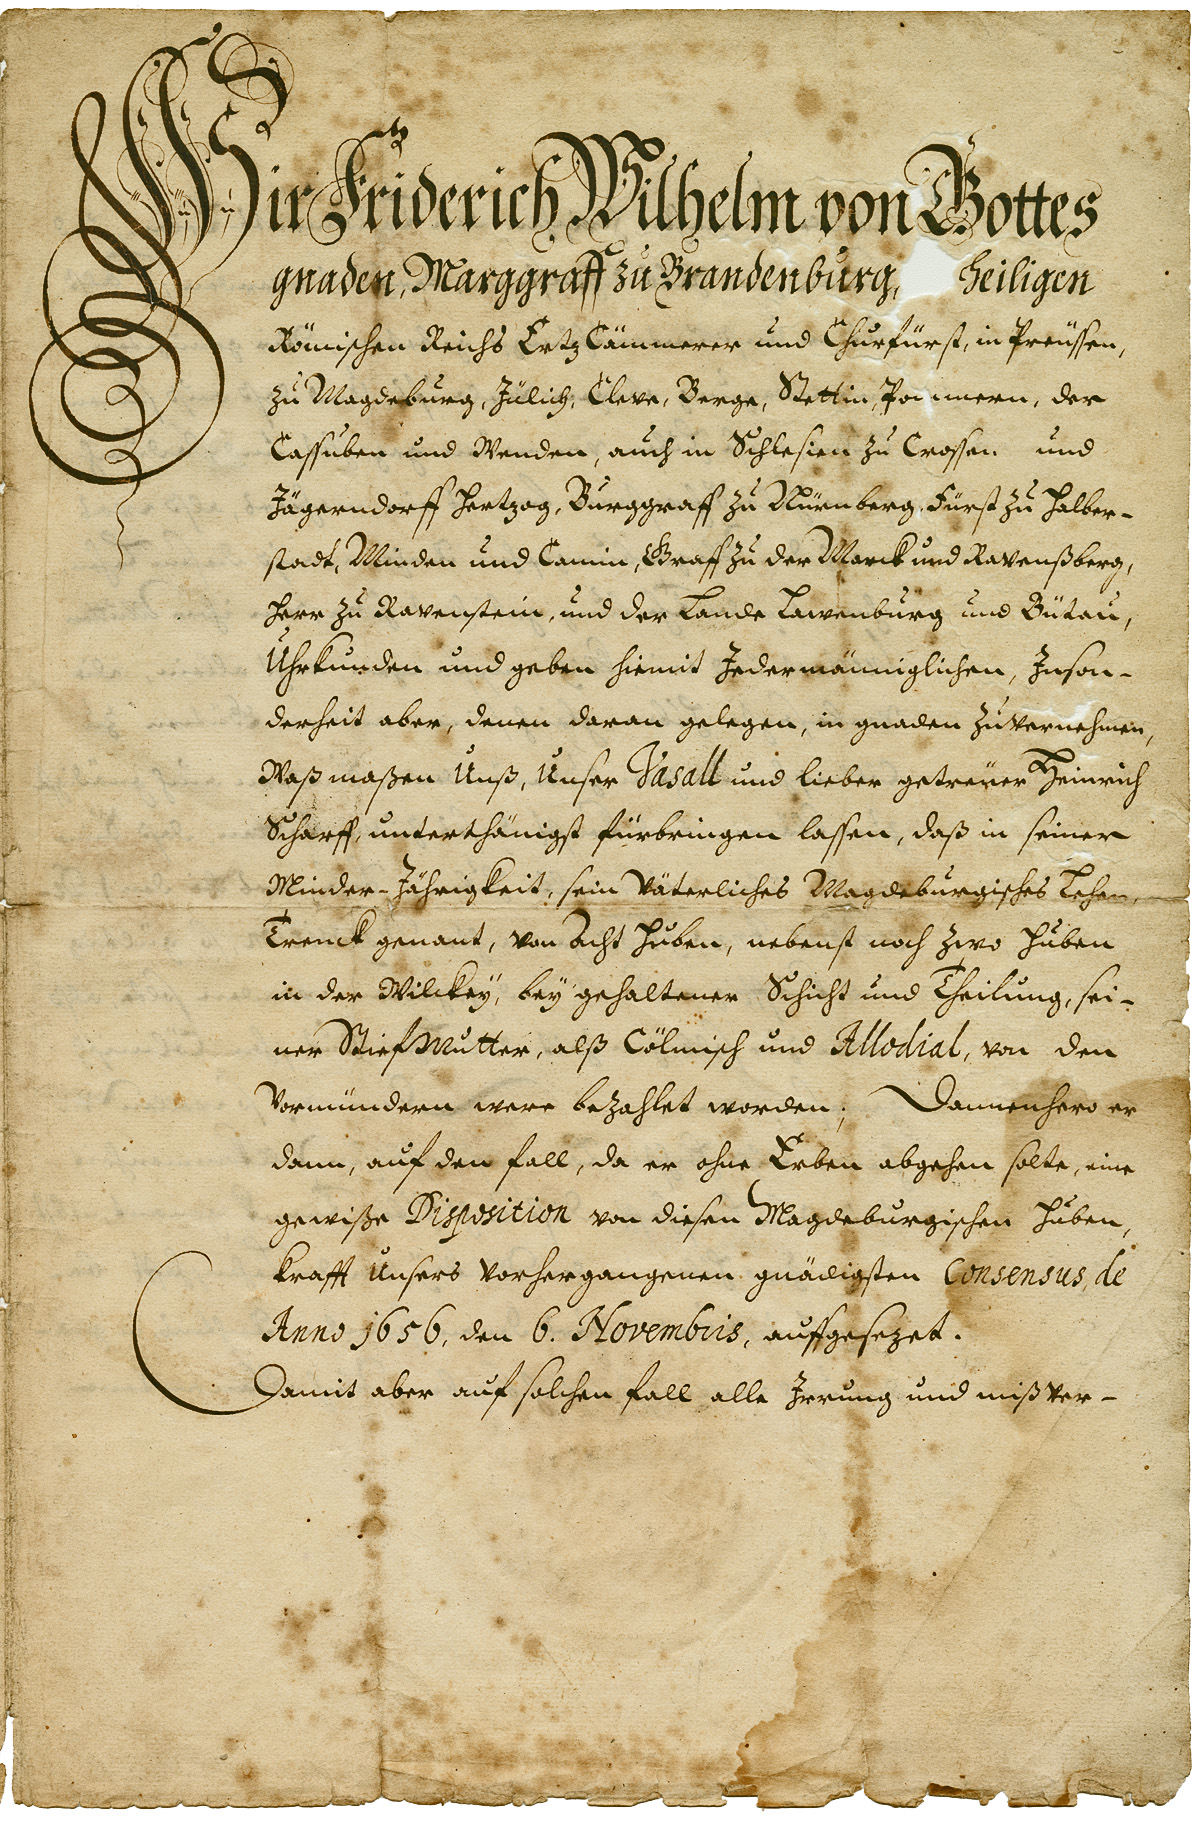 Wir Friderich Wilhelm von Gottes
gnaden, Marggraff zu Brandenburg, heiligen
Römischen Reichs Ertz Cämmerer und Churfürst, in Preüssen,
zu Magdeburg, Jülich, Cleve, Berge, Stettin, Pommern, der
Cassuben und Wenden, auch in Schlesien zu Crossen und
Jägerndorff Hertzog, Burggraff zu Nürnberg, Fürst zu Halber-
stadt, Minden und Camin, Graff zu der Marck und Ravenßberg,
Herr zu Ravenstein, und der Lande Lawenburg und Bütau,
Uhrkunden und geben hiemit Jedermänniglichen, Inson-
derheit aber, denen daran gelegen, in gnaden zuvernehmen,
Waß maßen Unß, Unser Vasall und lieber getreüer Heinrich
Scharff, unterthänigst fürbringen lassen, daß in seiner
Minder-Jährigkeit, sein Väterliches Magdeburgisches Lehen,
Trenck genant, von Acht Huben, nebenst noch zwo Huben
in der Wilckey, bey gehaltener Schicht und Theilung, sei-
ner StiefMutter, alß Cölmisch und Allodial, von den
Vormündern were bezahlet worden; Dannenhero er
dann, auf den fall, da er ohne Erben abgehen solte, eine
gewiße Disposition von diesen Magdeburgischen Huben,
krafft Unsers vorhergangenen gnädigsten Consensus, de
Anno 1656, den 6. Novembris, auffgesezet.
Damit aber auf solchen fall alle Irrung und mißver-